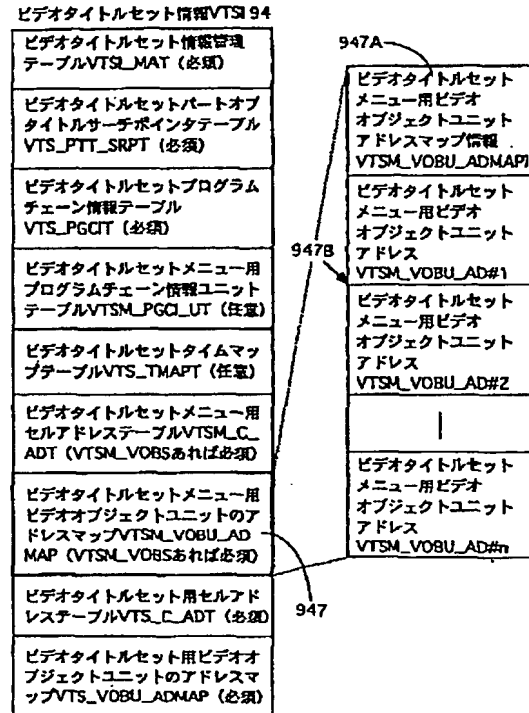 ビデオタイトルセット情報VTSI 94
ビデオタイトルセット情報管理
テーブルVTSI_MAT（必須）
ビデオタイトルセットパートオブ
タイトルサーチポインタテーブル
VTS_PTT_SRPT（必須）
ビデオタイトルセットプログラム
チェーン情報テーブル
VTS_PGCIT（必須）
ビデオタイトルセットメニュー用
プログラムチェーン情報ユニット
テーブルVTSM_PGCI_UT（任意）
ビデオタイトルセットタイムマッ
プテーブルVTS_TMAPT（任意）
ビデオタイトルセットメニュー用
セルアドレステーブルVTSM_C_
ADT（VTSM_VOBSあれば必須）
ビデオタイトルセットメニュー用
ビデオオブジェクトユニットのア
ドレスマップVTSM_VOBU_AD
MAP（VTSM_VOBSあれば必須）
ビデオタイトルセット用セルアド
レステーブルVTS_C_ADT（必須）
ビデオタイトルセット用ビデオオ
ブジェクトユニットのアドレスマ
ップVTS_VOBU_ADMAP（必須）
947
947A
ビデオタイトルセット
メニュー用ビデオ
オブジェクトユニット
アドレスマップ情報
VTSM_VOBU_ADMAPI
ビデオタイトルセット
メニュー用ビデオ
オブジェクトユニット
アドレス
VTSM_VOBU_AD#1
947B
ビデオタイトルセット
メニュー用ビデオ
オブジェクトユニット
アドレス
VTSM_VOBU_AD#2
ビデオタイトルセット
メニュー用ビデオ
オブジェクトユニット
アドレス
VTSM_VOBU_AD#n